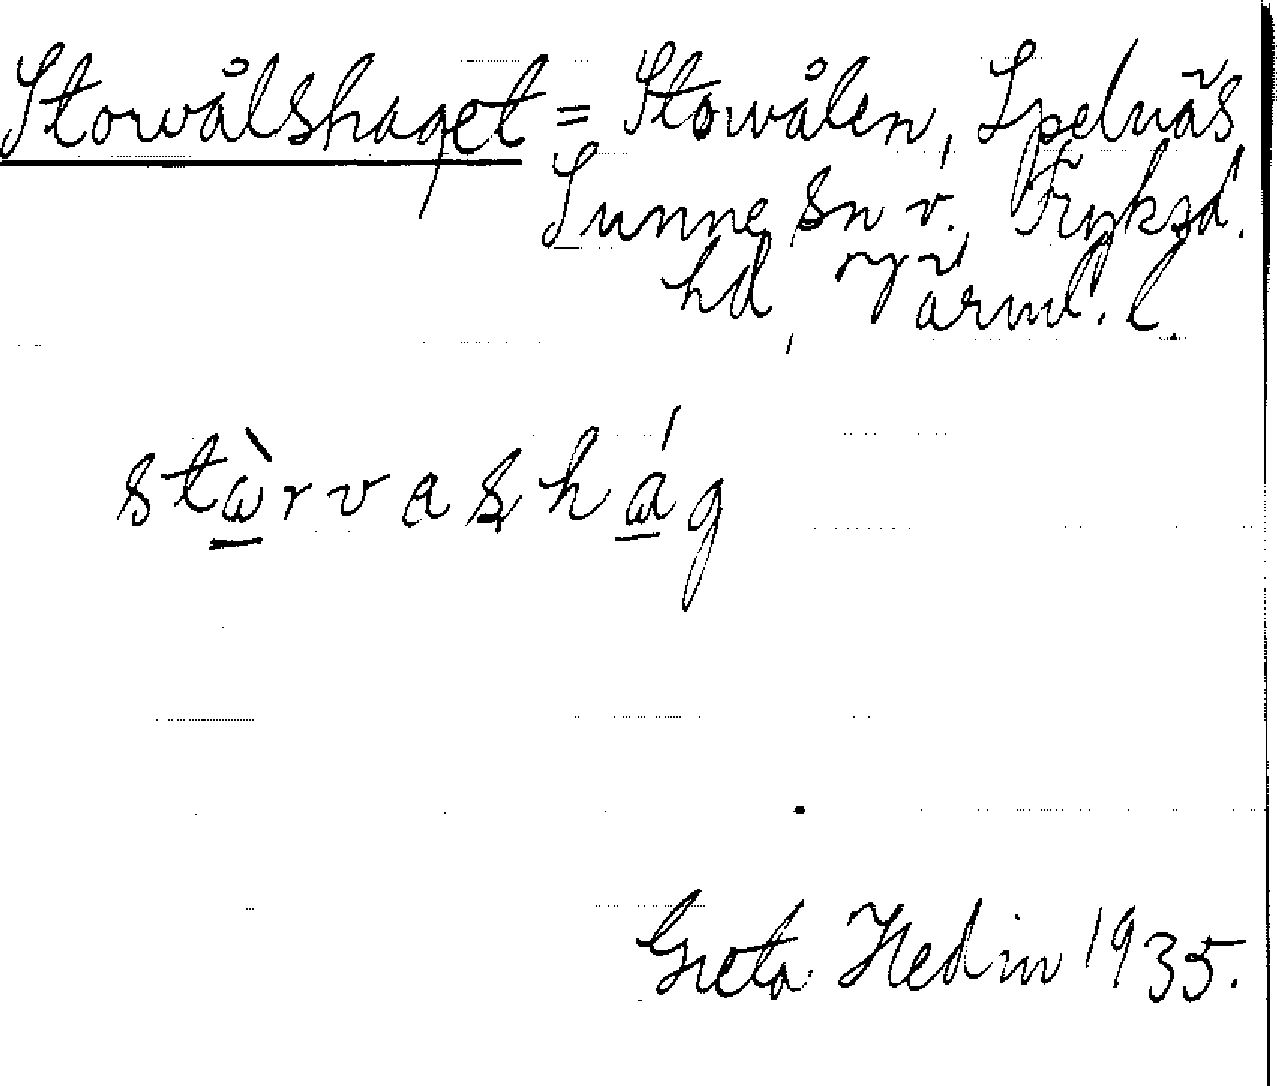 Storvålshaget = Storvålen, Spelnäs
Sunne sn v. Fryksd.
hd, Värml. l.
stὼrvashág
Greta Hedin 1935.